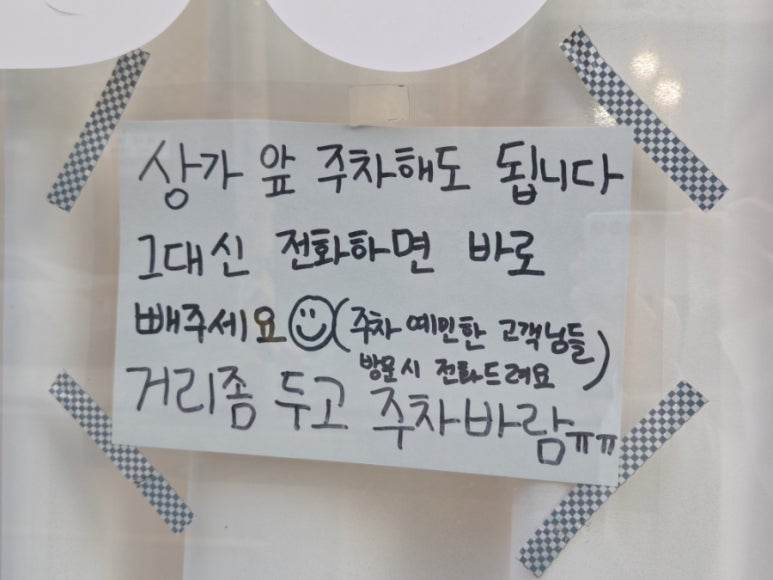 상가 앞 주차해도 됩니다
그대신 전화하면 바로
빼주세요☺(주차 예민한 고객님들
방문시 전화드려요)
거리좀 두고 주차바람ㅠㅠ